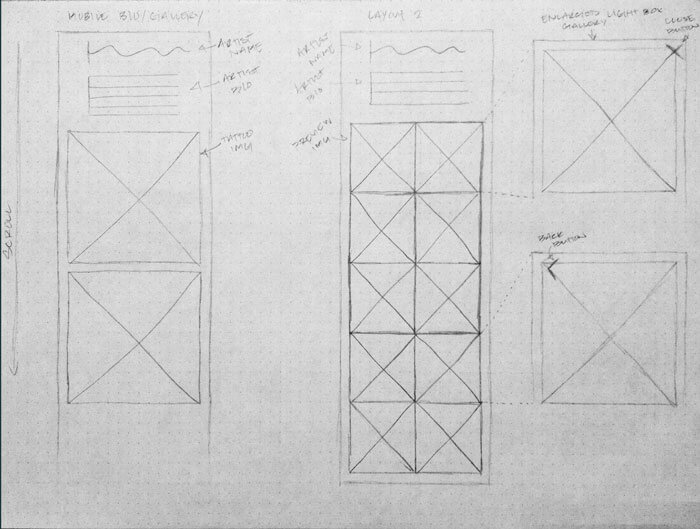 MOBILE BIO/GALLERY
ARTIST
NAME
ARTIST
BIO
TATTOO
IMG
SCROLL
LAYOUT 2
ARTIST
NAME
ARTIST
BIO
PREVIEW
IMG
ENLARGED LIGHT BOX
GALLERY
CLOSE
BUTTON
BACK
BUTTON